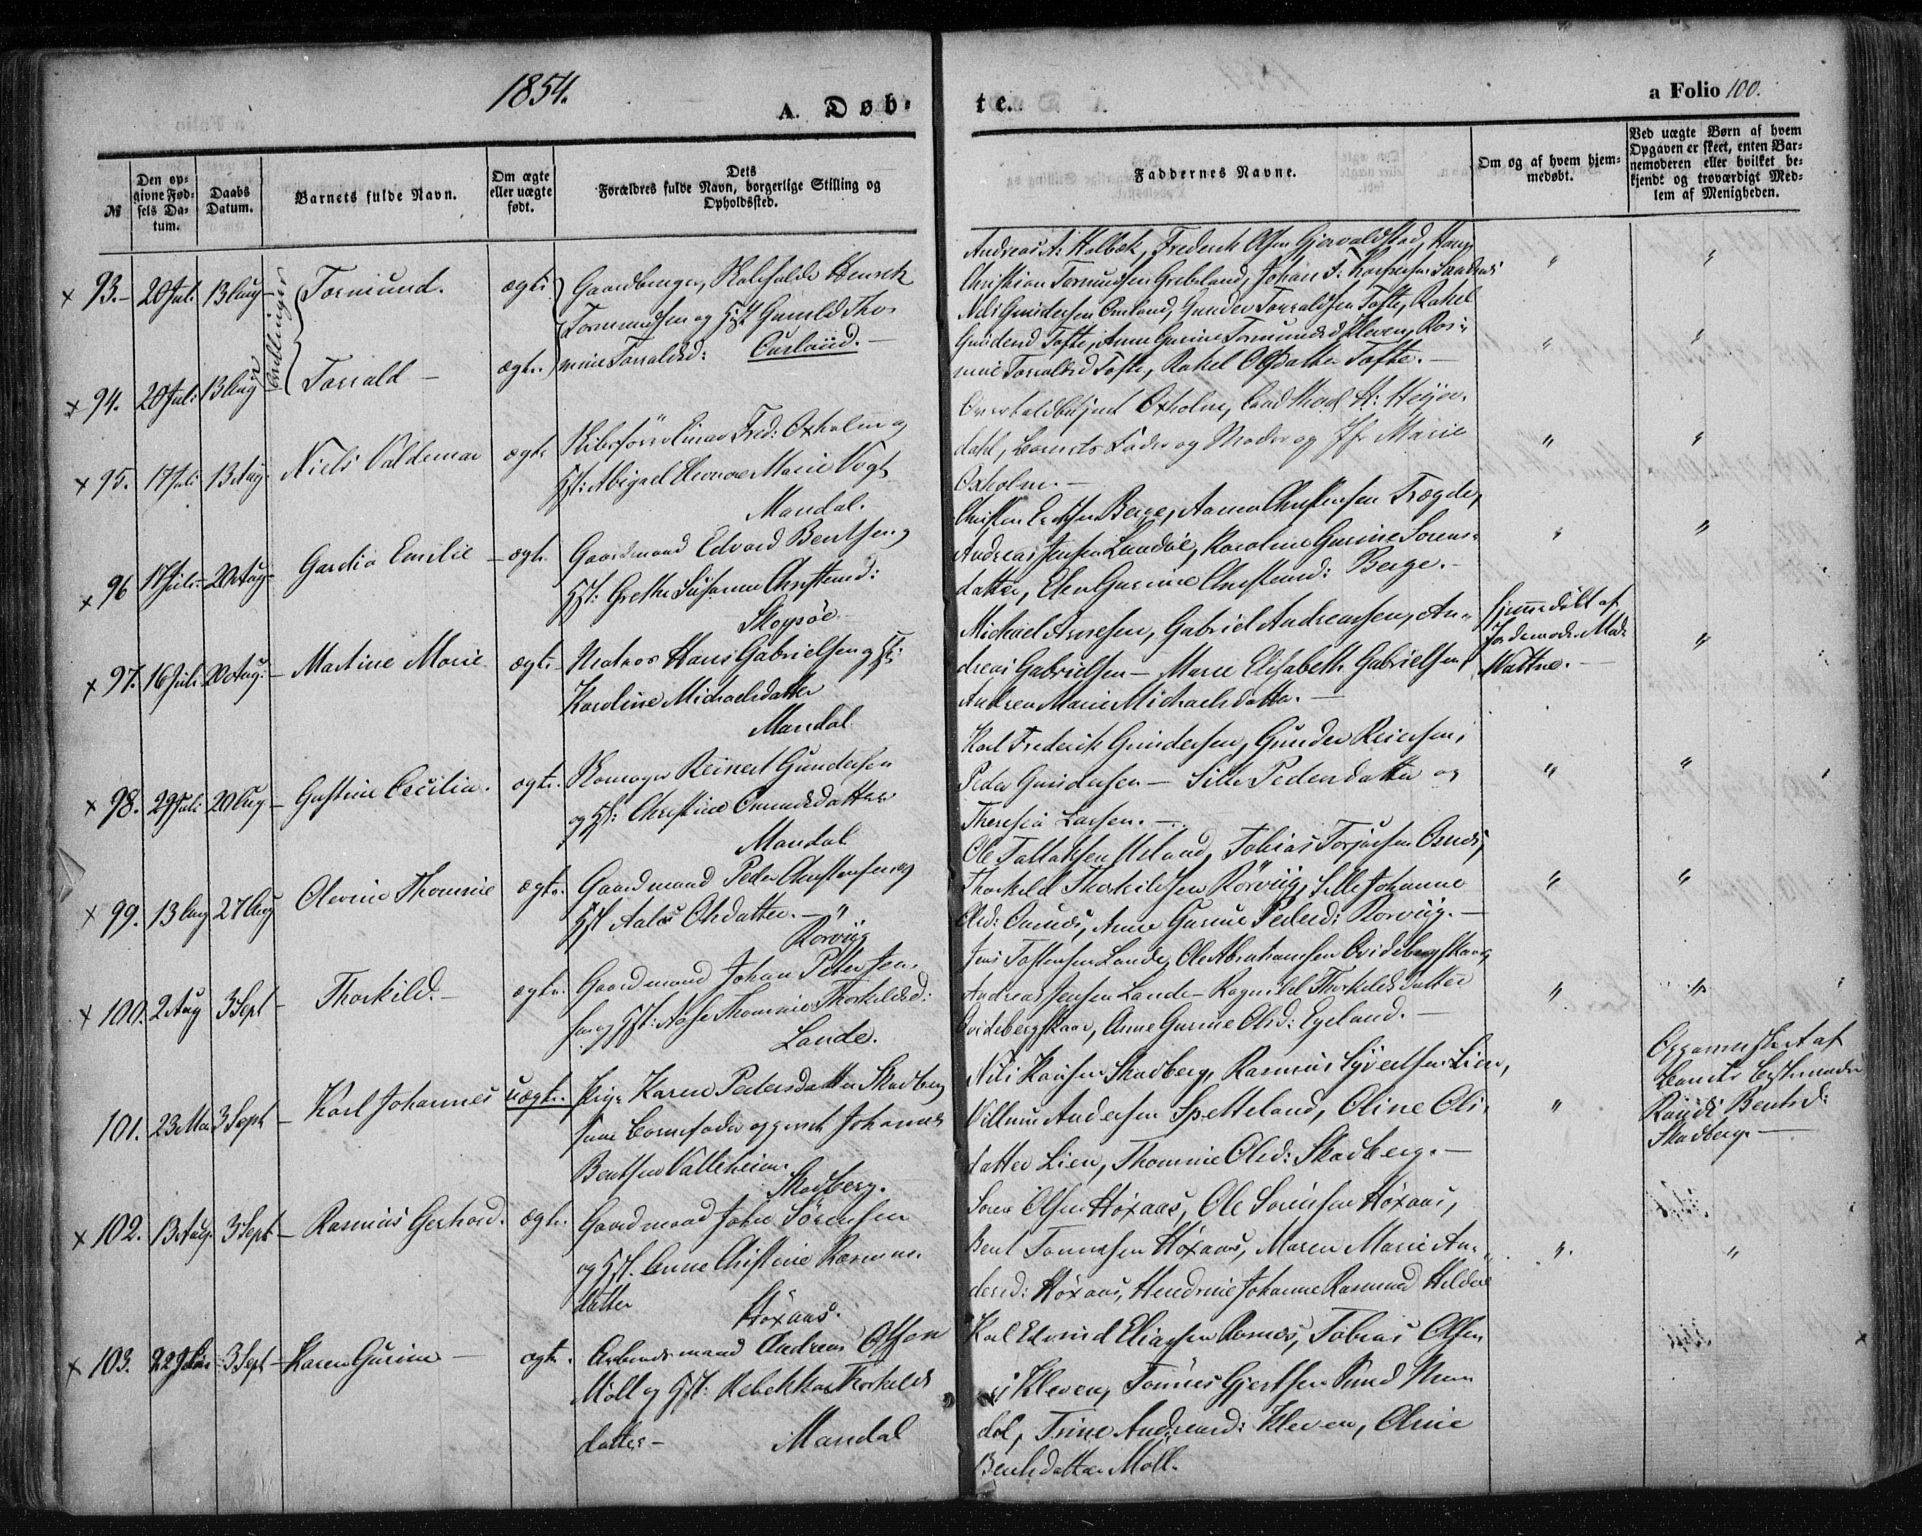 1854.
A. Døb-
te.
a Folio 100.
№
Den op-
givne Fød-
sels Da-
tum.
Daabs
Datum.
Barnets fulde Navn.
Om ægte
eller uægte
født.
Dets
Forældres fulde Navn, borgerlige Stilling og
Opholdsted.
Faddernes Navne.
Om og af hvem hjem-
medøbt.
Ved uægte Børn af hvem
Opgaven er skeet, enten Bar-
nemoderen eller hvilket be-
kjendt og troværdigt Med-
lem af Menigheden.
93. 20 Juli 13 Aug Tormund. ægte
Tvillinger
Henrik
Tormundsen og Hst Gunild Tho-
mine Torralsd:
Andreas A: Holbek, Frederik Olsen
Christian Tormundsen Grebsland, Johan
Nils Gundersen, Gunder Torvaldsen Tofte, Rakel
Gundersd Tofte, Anne Gurine Tormundsd Kleven,
94. 20 Juli 13 Aug Torrald — ægte
mine Torralsd Tofte, Rakel Olsdatter Tofte. —
95. 17 Juli 13 Aug. Niels Valdemar ægte
Fred: Oxholm og
Hst: Abigael Marie Vogt
Mandal.
Oxholm, Cand Theol H: Heyer-
dahl, Barnets Fader og Moder og Jfr Marie
Oxholm. —
96 17 Juli 20 Aug Gardia Emilie — ægte
Gaardmand Edvard Bentsen og
Hst: Grethe Susanne Christensd:
Skogsøe
Christen Berge, Aanen Christensen Trægde,
Andreas Jensen Landøe, Karoline Gurine Sørens-
datter, Elen Gurine Christensd: Berge. —
97. 16 Juli 20 Aug. — Martine Marie ægte
Matros Hans Gabrielsen og Hst:
Karoline Michaelsdatter
Mandal
Michael Arnesen, Gabriel Andreassen, An-
dreas Gabrielsen — Marie Elisabeth Gabrielsen,
Andrea Marie Michaelsdatter. —
Hjemmedøbt af
Jordemoder Mad:
Wattne. —
98. 29 Juli 20 Aug — Gustine Cecilia. ægte.
Reinert Gundersen
og Hst: Christine Omundsdatter
Mandal
Karl Frederik Gundersen, Gunder Reiersen,
Peder Gundersen — Sille Pedersdatter og
Theresia Larsen. —
99. 13 Aug 27 Aug Olevine Thomine ægte.
Gaardmand Peder Christensen og
Hst Aalas Olsdatter. —
Rørvig
Ole Tallaksen Usland, Tobias Torjusen Osnes,
Thorkild Thorkildsen Rørvig, Sille Johanne
Olsd: Osnes, Anne Gurine Pedersd: Rørvig. —
100. 2 Aug 3 Sept — Thorkild. — ægte.
Gaardmand Johan Peter Jen-
sen og Hst: Aase Thomine Thorkildsd:
Lande.
Jens Tostensen Lande, Ole Abrahamsen Qvideberg Skaar,
Andreas Jensen Lande — Ragnild Thorkildsdatter
Qvidebergskaar, Anne Gurine Olsd: Egeland. —
101. 23 Mai 3 Sept — Karl Johannes uægte.
Pige Karen Pedersdatter Skadberg
som Barnefader opgivet Johannes
Bentsen Valleheien.
Skadberg.
Nils Hansen Skadberg, Rasmus Syvertsen Lien,
Villum Andersen Spetteland, Oline Ols-
datter Lien, Thomine Olsd: Skadberg. —
Opgaven skeet af
Barnets Bestemoder
Bentsd:
Skadberg. —
102. 13 Aug. 3 Sept — Rasmus Gerhard. ægte.
Gaardmand John Sørensen
og Hst. Anne Christine Rasmus-
datter
Høxaas.
Søren Olsen Høxaas, Ole Sørensen Høxaas,
Bent Tønnesen Høxaas, Maren Marie An-
dersd: Høxaas, Hendrine Johanne Rasmusd
103. 3 Sept — Karen Gurine — ægte.
Arbeidsmand Andreas Olsen
Moll og Hst: Rebekka Thorkilds
datter — Mandal
Karl Edvind Eliassen Risnes, Tobias Olsen
Kleven, Tønnes Gjertsen Sund Man
dal, Trine Andreasd: Kleven, Oline
Bentsdatter Moll.